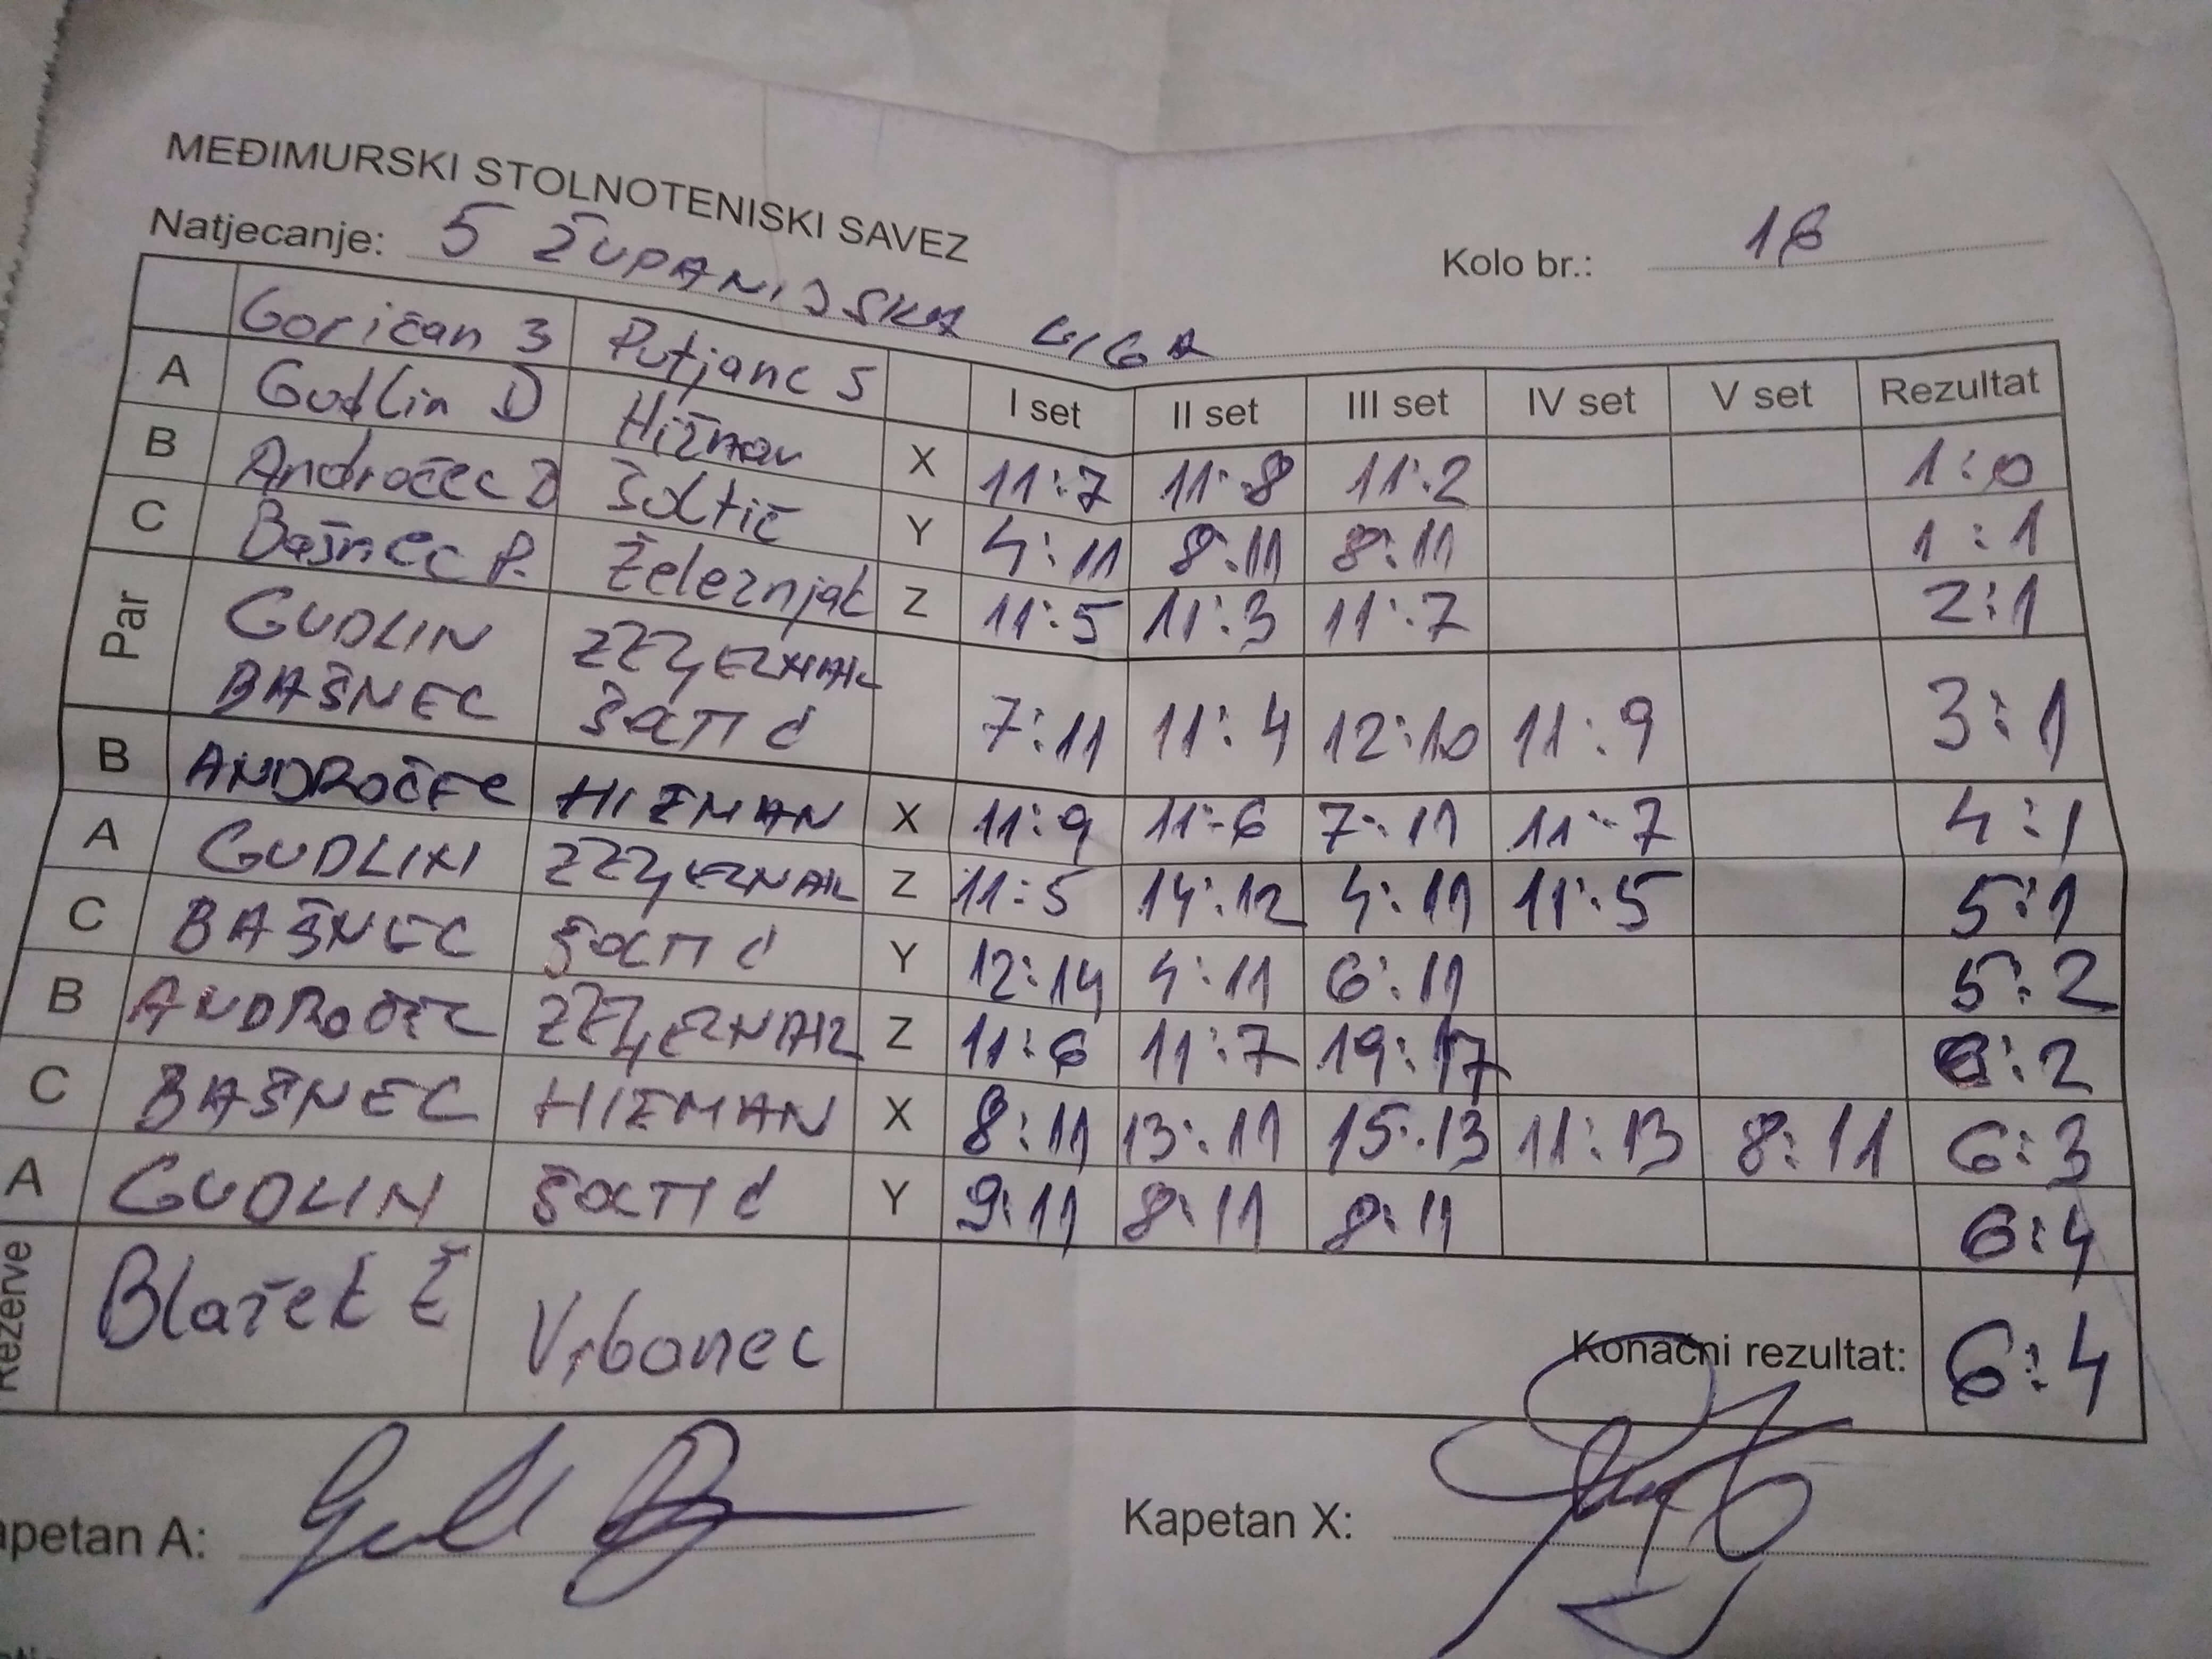 MEĐIMURSKI STOLNOTENISKI SAVEZ
Natjecanje: 5 ŽUPANIJSKA LIGA
Kolo br.: 18
Goričan 3 Putjanc 5 I set II set III set IV set V set Rezultat
A Gudlin D Hižman X 11:7 11:8 11:2 1:0
B Andročec D Šoltič Y 4:11 8:11 8:11 1:1
C Bašnec P. Železnjak Z 11:5 11:3 11:7 2:1
Par GUDLIN ŽELJEZNJAK
BAŠNEC ŠOLTIĆ 7:11 11:4 12:10 11:9 3:1
B ANDROČEC HIŽMAN X 11:9 11:6 7:11 11:7 4:1
A GUDLIN ŽELJEZNJAK Z 11:5 14:12 4:11 11:5 5:1
C BAŠNEC ŠOLTIĆ Y 12:14 4:11 6:11 5:2
B ANDROČEC ŽELJEZNJAK Z 11:6 11:7 19:17 6:2
C BAŠNEC HIŽMAN X 8:11 13:11 15:13 11:13 8:11 6:3
A GUDLIN ŠOLTIĆ Y 9:11 8:11 8:11 6:4
Rezerve Blažek Ž Vrbanec Konačni rezultat: 6:4
apetan A:
Kapetan X: